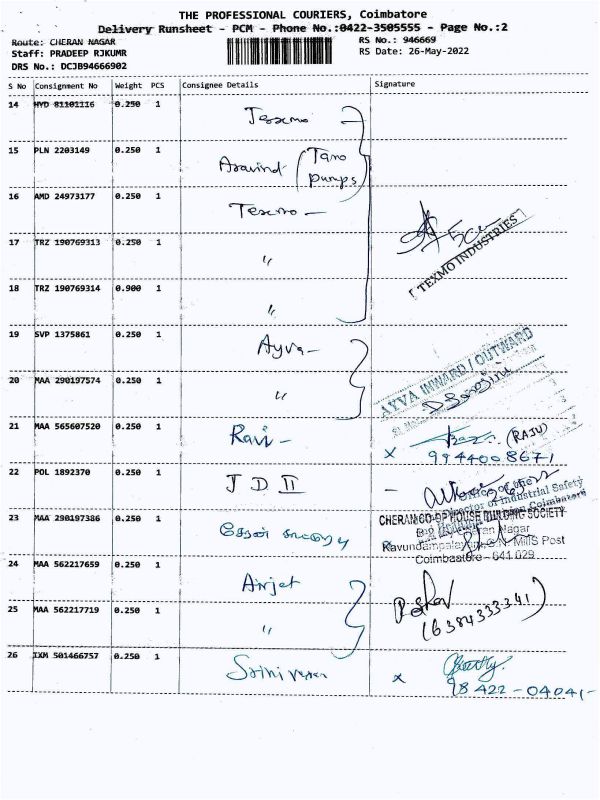 THE PROFESSIONAL COURIERS, Coimbatore
Delivery Runsheet - PCM - Phone No.:0422-3505555 - Page No.:2
Route: CHERAN NAGAR RS No.: 946669
Staff: PRADEEP RJKUMR RS Date: 26-May-2022
DRS No.: DCJB94666902
S No Consignment No Weight PCS Consignee Details Signature
14 HYD 81101116 0.250 1 Texmo
15 PLN 2203149 0.250 1 Aravind (Taro
pumps)
16 AMD 24973177 0.250 1 Texmo -
17 TRZ 190769313 0.250 1 "
TEXMO INDUSTRIES
18 TRZ 190769314 0.900 1 "
19 SVP 1375861 0.250 1 Ayva -
AYVA INWARD / OUTWARD
20 MAA 290197574 0.250 1 "
21 MAA 565607520 0.250 1 Ravi - (RAJU)
x 9944008671
22 POL 1892370 0.250 1 J D II -
Office of the
Director of Industrial Safety
Coimbatore
23 MAA 290197386 0.250 1 சேரன்
CHERAN CO-OP HOUSE BUILDING SOCIETY
Nagar
Kavundampalayam, G.N. Mills Post
Coimbatore - 641 029
24 MAA 562217659 0.250 1 Airjet
25 MAA 562217719 0.250 1 "
(6384333341)
26 IXM 501466757 0.250 1 Srinivasan x
98 422 - 04041 -